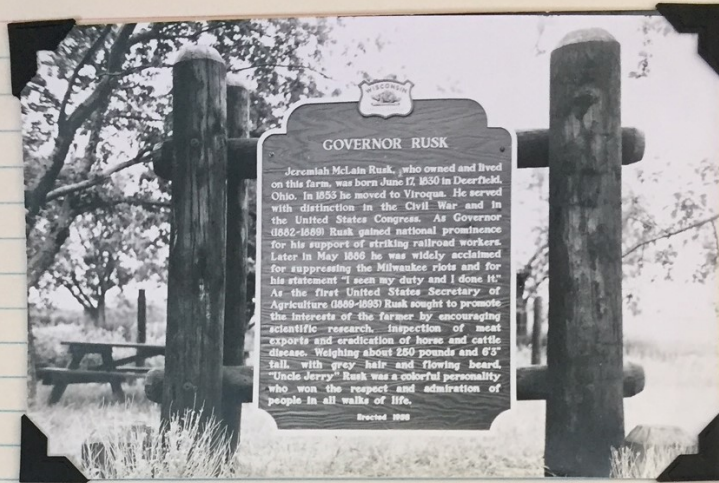 WISCONSIN
GOVERNOR RUSK
Jeremiah McLain Rusk, who owned and lived
on this farm, was born June 17, 1830 in Deerfield,
Ohio. In 1853 he moved to Viroqua. He served
with distinction in the Civil War and in
the United States Congress. As Governor
(1882-1889) Rusk gained national prominence
for his support of striking railroad workers.
Later in May 1886 he was widely acclaimed
for suppressing the Milwaukee riots and for
his statement "I seen my duty and I done it."
As the first United States Secretary of
Agriculture (1889-1893) Rusk sought to promote
the interests of the farmer by encouraging
scientific research, inspection of meat
exports and eradication of horse and cattle
disease. Weighing about 250 pounds and 6'3"
tall, with grey hair and flowing beard,
"Uncle Jerry" Rusk was a colorful personality
who won the respect and admiration of
people in all walks of life.
Erected